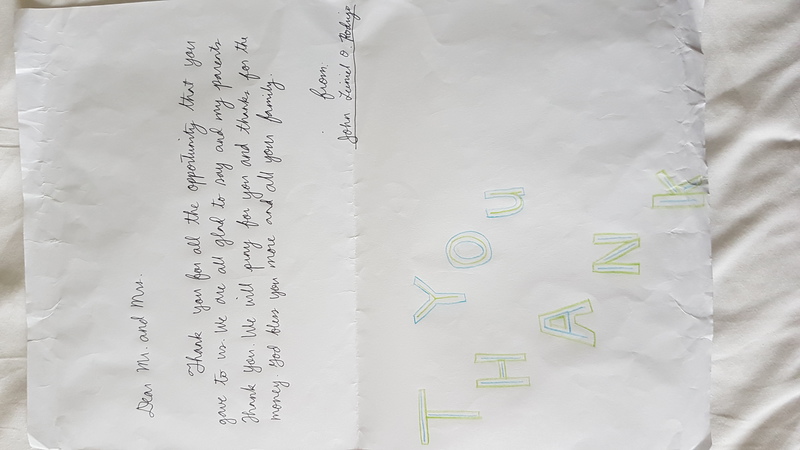 Dear Mr. and Mrs.
Thank you for all the opportunity that you
gave to us. We are all glad to say and my parents
Thank you. We will pray for you and thanks for the
money. God bless you more and all your family.
from:
John Leiniel O.
THANK
You